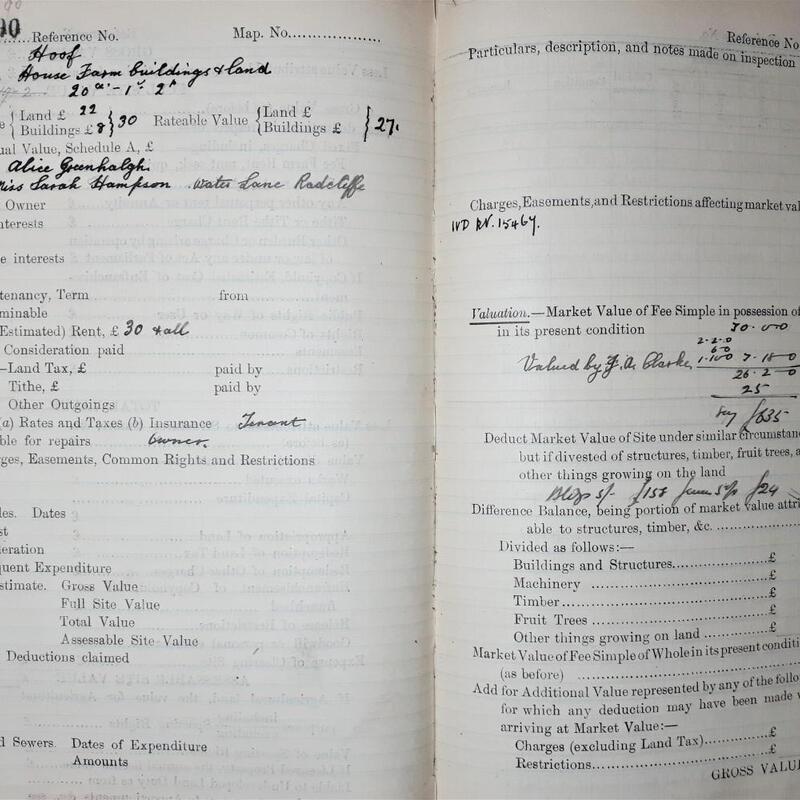 90
Reference No. Map. No.
Hoof
House Farm buildings & land
20ac - 1r 2p
Land £ 22
Buildings £ 8 } 30 Rateable Value { Land £
Buildings £ } 27.
ual Value, Schedule A, £
Alice Greenhalgh.
Miss Sarah Hampson Water Lane Radcliffe
Owner
nterests
e interests
tenancy, Term from
minable
(Estimated) Rent, £ 30 & all
Consideration paid
—Land Tax, £ paid by
Tithe, £ paid by
Other Outgoings
(a) Rates and Taxes (b) Insurance Tenant
ble for repairs Owner.
rges, Easements, Common Rights and Restrictions
les. Dates £
st
leration
quent Expenditure
stimate. Gross Value
Full Site Value
Total Value
Assessable Site Value
Deductions claimed
d Sewers. Dates of Expenditure
Amounts
Reference No
Particulars, description, and notes made on inspection
Charges, Easements, and Restrictions affecting market val
IVD RV. 15467.
Valuation.—Market Value of Fee Simple in possession of
in its present condition 30 . 0 0
2 - 2 . 0
Valued by F. A. Clarke 7 . 18 0
26 . 2 0
25
say £635
Deduct Market Value of Site under similar circumstanc
but if divested of structures, timber, fruit trees, a
other things growing on the land
Bldgs s/- £158 £24
Difference Balance, being portion of market value attri
able to structures, timber, &c.
Divided as follows:—
Buildings and Structures £
Machinery £
Timber £
Fruit Trees £
Other things growing on land £
Market Value of Fee Simple of Whole in its present conditi
(as before) £
Add for Additional Value represented by any of the follo
for which any deduction may have been made w
arriving at Market Value:—
Charges (excluding Land Tax) £
Restrictions £
GROSS VALU